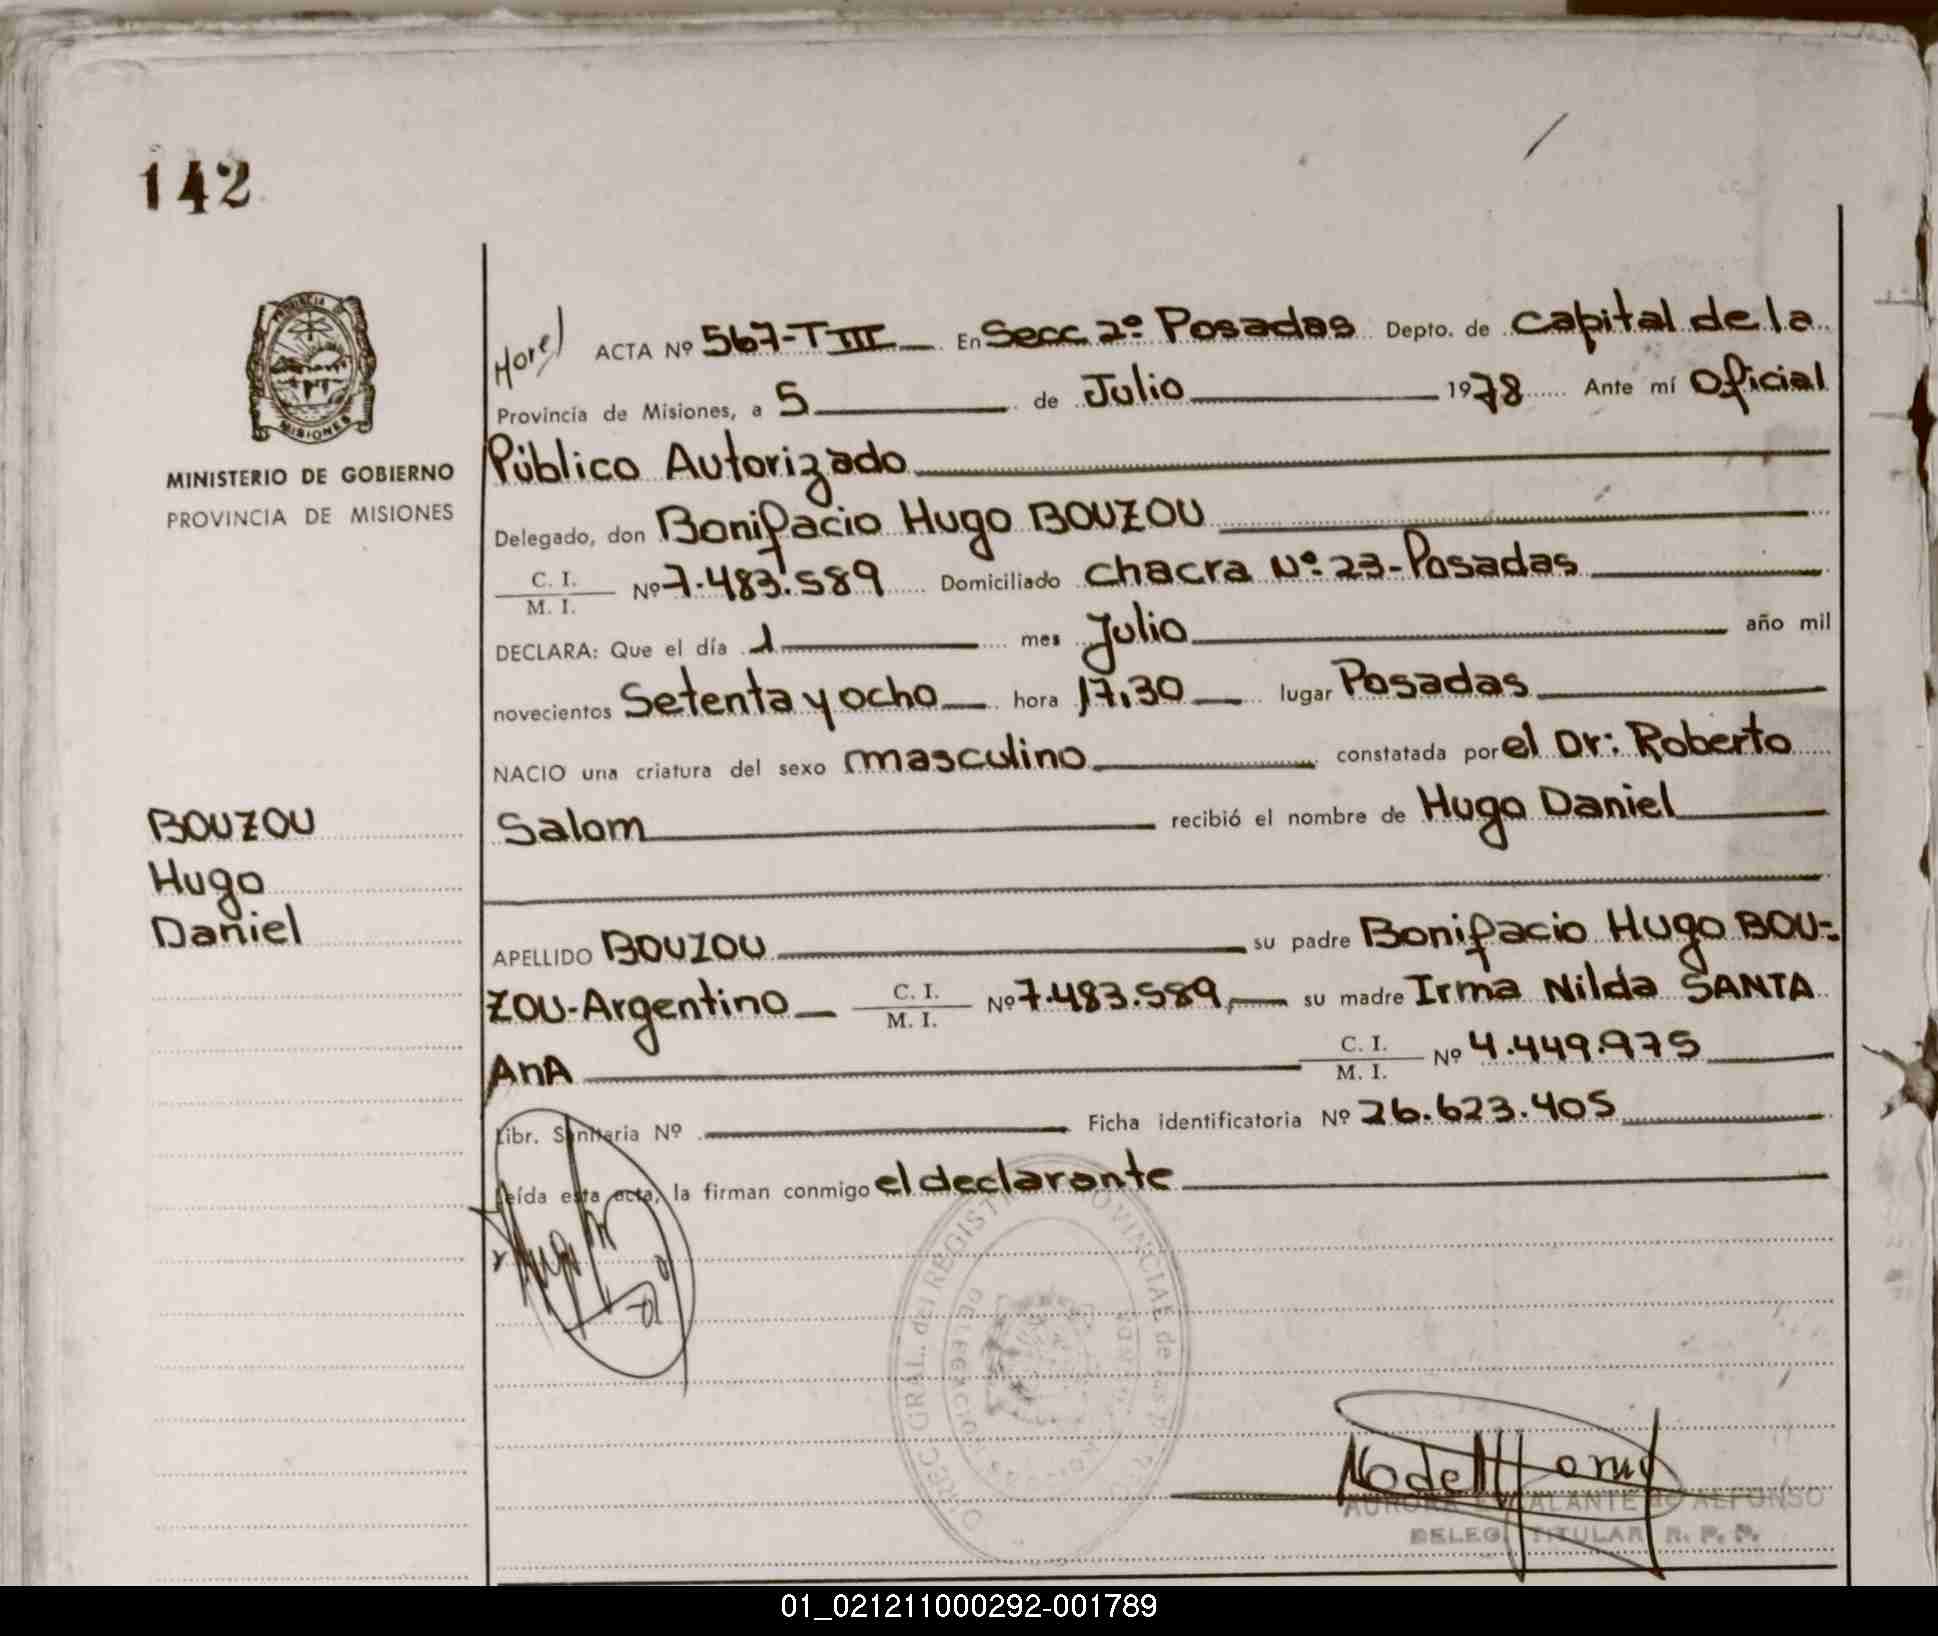 142
ACTA Nº 567-T III En Secc 2º Posadas Depto. de Capital de la
Provincia de Misiones, a 5 de Julio 1978 Ante mí Oficial
Público Autorizado
MINISTERIO DE GOBIERNO
PROVINCIA DE MISIONES
Delegado, don Bonifacio Hugo BOUZOU
C. I.
M. I. Nº 7.483.589 Domiciliado Chacra Nº 23-Posadas
DECLARA: Que el día 1 mes Julio año mil
novecientos Setenta y ocho hora 17,30 lugar Posadas
NACIO una criatura del sexo masculino constatada por el Dr: Roberto
Salom recibió el nombre de Hugo Daniel
BOUZOU
Hugo
Daniel
APELLIDO BOUZOU su padre Bonifacio Hugo BOU-
ZOU-Argentino C. I.
M. I. Nº 7.483.589, su madre Irma Nilda SANTA
AnA C. I.
M. I. Nº 4.449.975
Libr. Sanitaria Nº Ficha identificatoria Nº 26.623.405
Leída esta acta, la firman conmigo el declarante
AURORA ALANTE de ALFONSO
DELEG. TITULAR R. P. P.
01_021211000292-001789